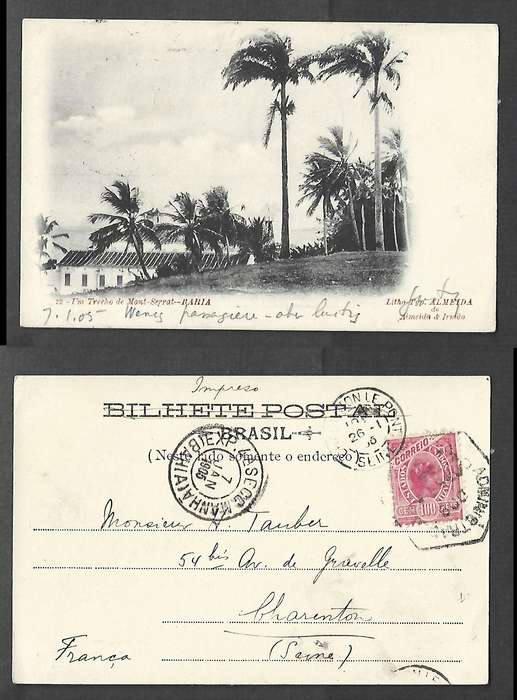 22 - Um Trecho de Mont-Serrat--BAHIA
Litho-Typ. ALMEIDA
de
Almeida & Irmão
7.1.05 Wenig passagiere - aber lustig
Impreso
BILHETE POSTAL
BRASIL
(Neste lado somente o endereço)
7
JAN
1905
26 -1
CORREIO
100
Monsieur H. Tauber
54 bis Av. de Gravelle
Charenton
França (Seine)